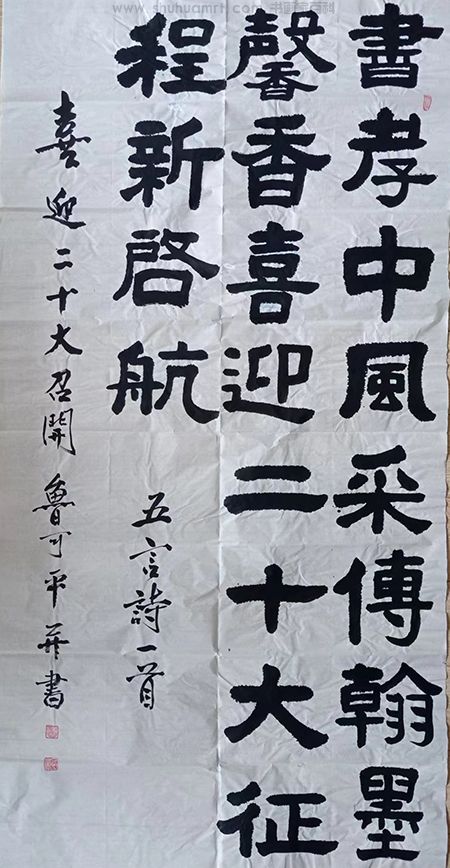 書孝中風采傳翰墨
馨香喜迎二十大征
程新啓航
五言詩一首
喜迎二十大召開 魯可平并書